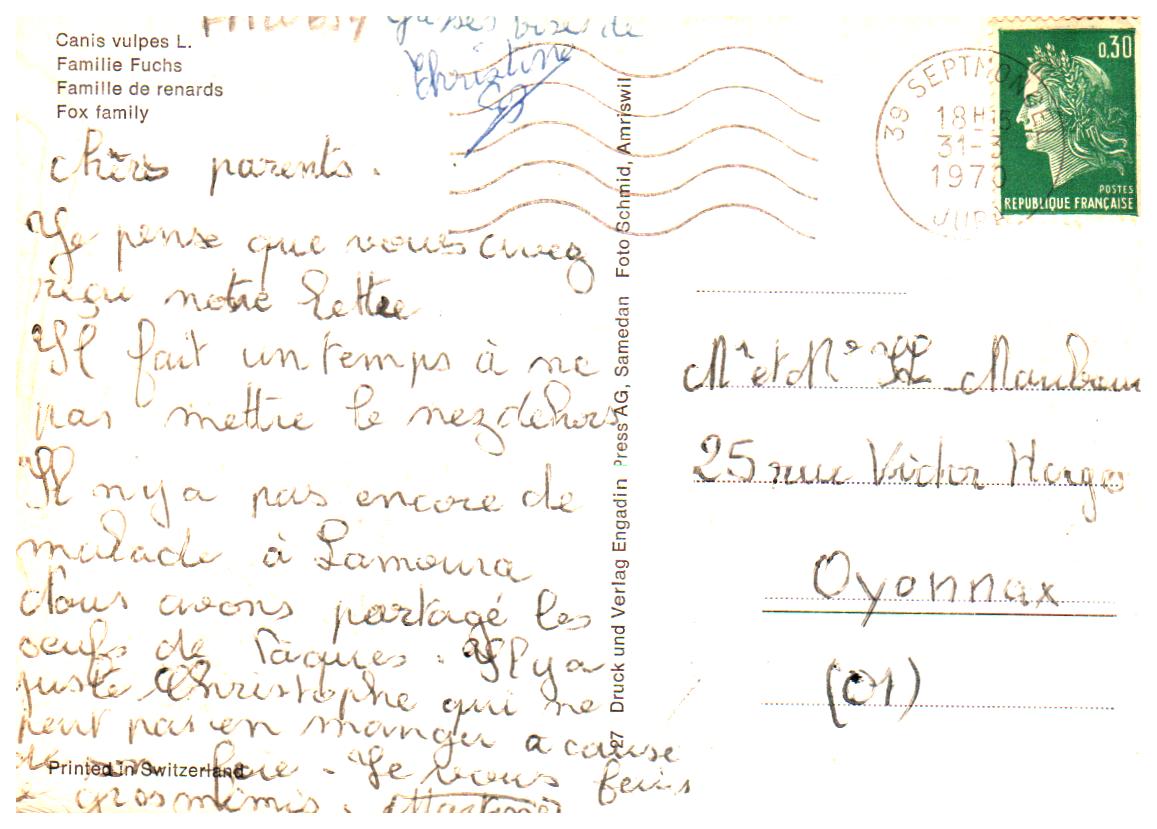 Canis vulpes L.
Familie Fuchs
Famille de renards
Fox family
Grosses bises de
Christine
chèrs parents.
Je pense que vous avez
reçu notre lettre
Il fait un temps à ne
pas mettre le nez dehors
Il n'y a pas encore de
malade à Lamoura
Nous avons partagé les
oeufs de Pâques. Il y a
juste Christophe qui ne
peut pas en manger a cause
de son foie. Je vous fais
de gros mimis. Martine
Printed in Switzerland
27 Druck und Verlag Engadin Press AG, Samedan Foto Schmid, Amriswil
39 SEPTMONCEL
18H15
31-3
1970
JURA
0,30
POSTES
REPUBLIQUE FRANÇAISE
Mr et Me
25 rue Victor Hugo
Oyonnax
(01)